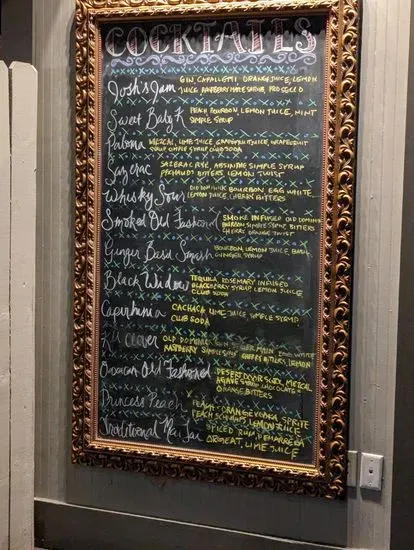 COCKTAILS
Josh's Jam
GIN CAPALLETTI ORANGE JUICE, LEMON
JUICE RASPBERRY MAPLE SHRUB, PROSECCO
Sweet Baby K
PEACH BOURBON, LEMON JUICE, MINT
SIMPLE SYRUP
Paloma
MEZCAL, LIME JUICE GRAPEFRUIT JUICE, GRAPEFRUIT
SYRUP SIMPLE SYRUP CLUB SODA
Sazerac
SAZERAC RYE, ABSINTHE SIMPLE SYRUP
PEYCHAUDS BITTERS LEMON TWIST
Whisky Sour
OLD DOMINICK BOURBON EGG WHITE
LEMON JUICE, CHERRY BITTERS
Smoked Old Fashioned
SMOKE INFUSED OLD DOMINICK
BOURBON, SIMPLE SYRUP, BITTERS
CHERRY ORANGE TWIST
Ginger Basil Smash
BOURBON, LEMON JUICE, BASIL
GINGER SYRUP
Black Widow
TEQUILA ROSEMARY INFUSED
BLACKBERRY SYRUP LEMON JUICE
CLUB SODA
Caperhinia
CACHACA LIME JUICE SIMPLE SYRUP
CLUB SODA
Clover
OLD DOMINICK GIN EGG WHITE
RASPBERRY SIMPLE SYRUP CHERRY BITTERS, LEMON
Oaxacan Old Fashioned
DESERT DOOR SOTOL, MEZCAL
AGAVE SYRUP CHOCOLATE &
ORANGE BITTERS
Princess Peach
PEACH + ORANGE VODKA SPRITE
PEACH SCHNAPPS, LEMON JUICE
Traditional Mai Tai
SPICED RUM, DEMARRERA
ORGEAT, LIME JUICE